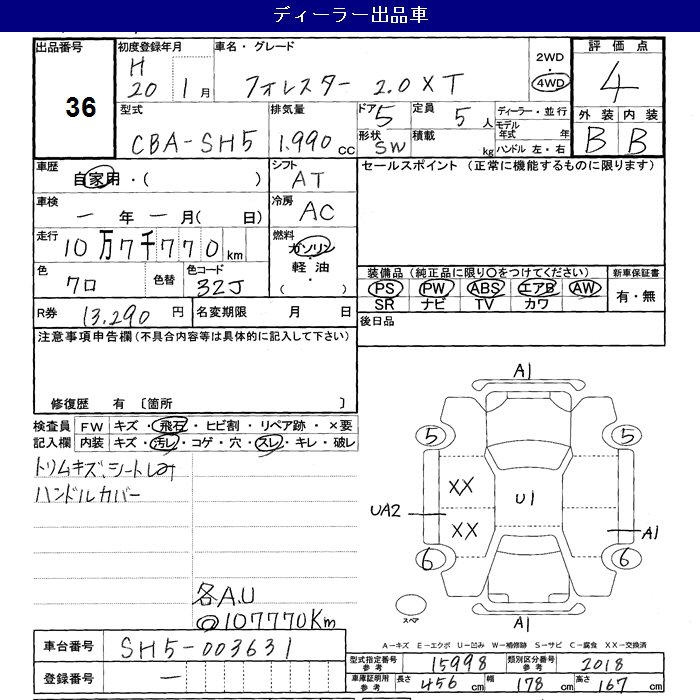 ディーラー出品車
出品番号
36
初度登録年月
H
20 1月
車名・グレード
フォレスター 2.0XT
2WD
・
4WD
評価点
4
型式
CBA-SH5
排気量
1.990 cc
ドア 5
形状 SW
定員 5 人
積載 kg
ディーラー・並行
モデル年式 年
ハンドル 左・右
外装 内装
B B
車歴
自家用・( )
シフト
AT
セールスポイント (正常に機能するものに限ります)
車検
一 年 一 月( 日)
冷房
AC
走行
10万7千770km
燃料
ガソリン
・
軽油
( )
色
クロ
色替
色コード
32J
装備品 (純正品に限り○をつけてください)
PS PW ABS エアB AW
SR ナビ TV カワ
新車保証書
有・無
R券 13,290 円
名変期限 月 日
後日品
注意事項申告欄 (不具合内容等は具体的に記入して下さい)
修復歴 有 〔箇所 〕
検査員
記入欄
FW キズ・飛石・ヒビ割・リペア跡・×要
内装 キズ・汚レ・コゲ・穴・スレ・キレ・破レ
トリムキズ、シートしみ
ハンドルカバー
各A.U
@107770Km
A1
5 5
XX
U1
UA2
XX
A1
6 6
スペア
A1
A-キズ E-エクボ U-凹み W-補修跡 S-サビ C-腐食 XX-交換済
車台番号 SH5-003631
登録番号 一
型式指定番号 参考 15998
類別区分番号 参考 2018
車庫証明用 参考 長さ 456 cm 幅 178 cm 高さ 167 cm